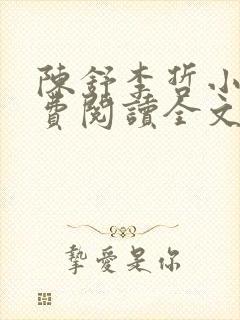 陳舒李哲小
費閱讀全文
摯愛是你